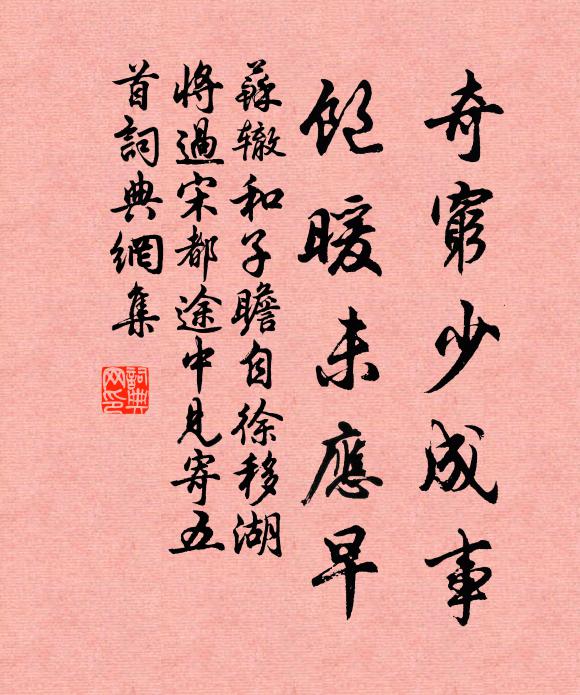 奇窮少成事
飽暖未應早
蘇轍和子瞻自徐移湖
將過宋都途中見寄五
首詞典網集
詞典
网印